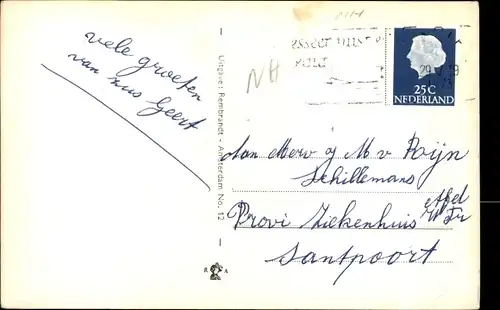 vele groeten
van zus Geert
Uitgave: Rembrandt - Amsterdam No. 12
NH
25 C
NEDERLAND
Aan Mevr g M v Rijn
Schillemans
Provi Ziekenhuis
Santpoort
R A